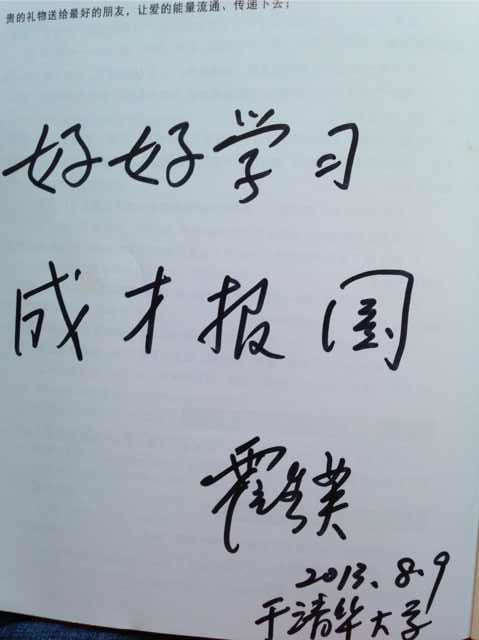 贵的礼物送给最好的朋友，让爱的能量流通、传递下去；
好好学习
成才报国
2013.8.9
于清华大学